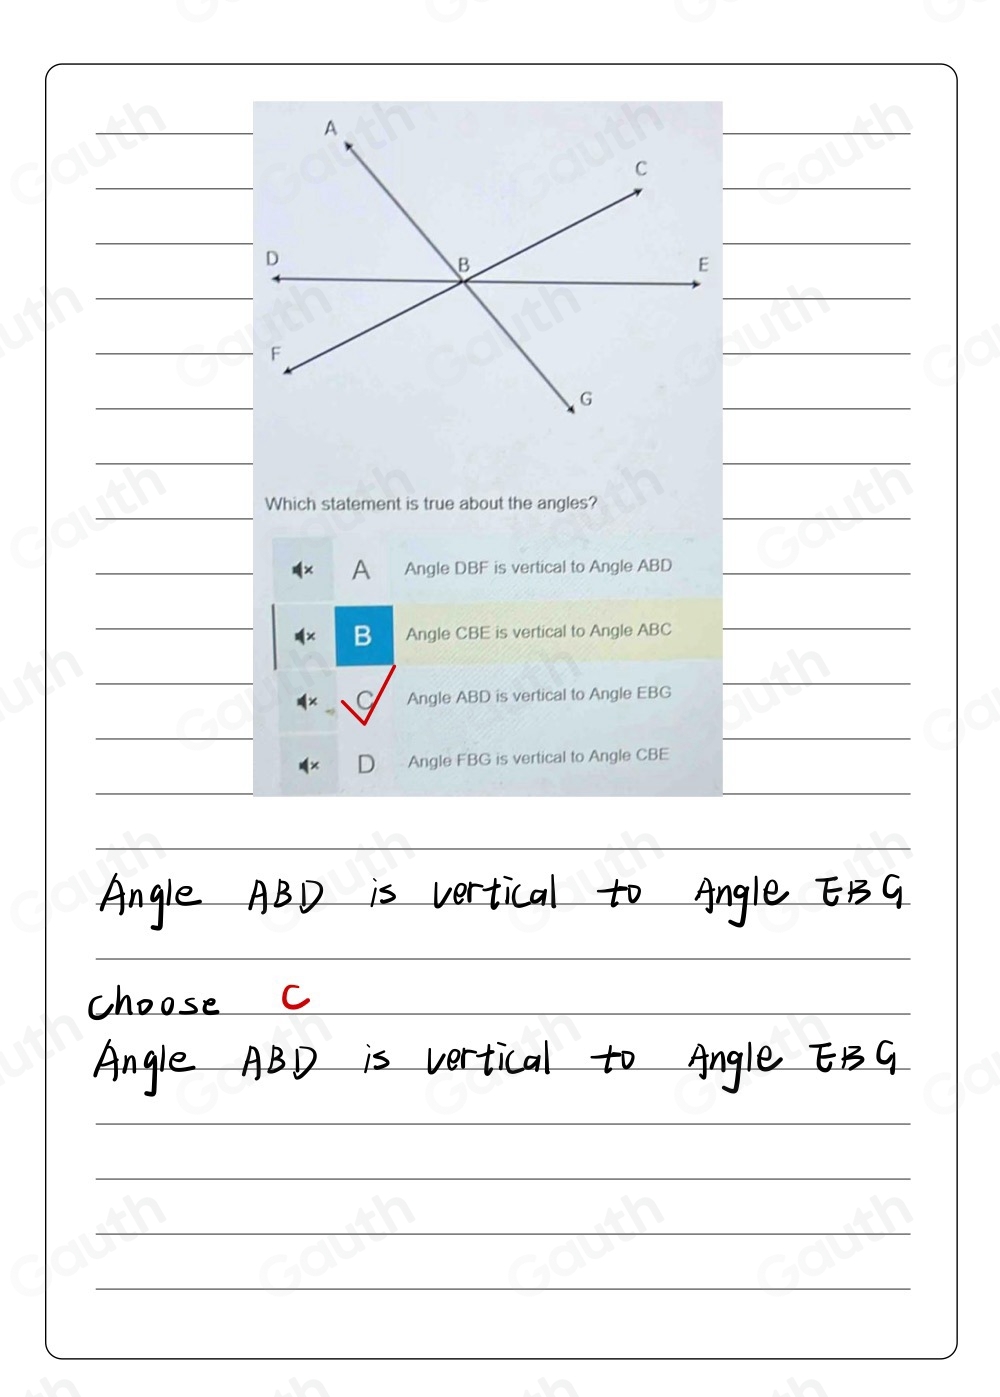 A
C
D
B
E
F
G
Which statement is true about the angles?
A Angle DBF is vertical to Angle ABD
B Angle CBE is vertical to Angle ABC
C Angle ABD is vertical to Angle EBG
D Angle FBG is vertical to Angle CBE
Angle ABD is vertical to Angle EBG
choose C
Angle ABD is vertical to Angle EBG
Gauth